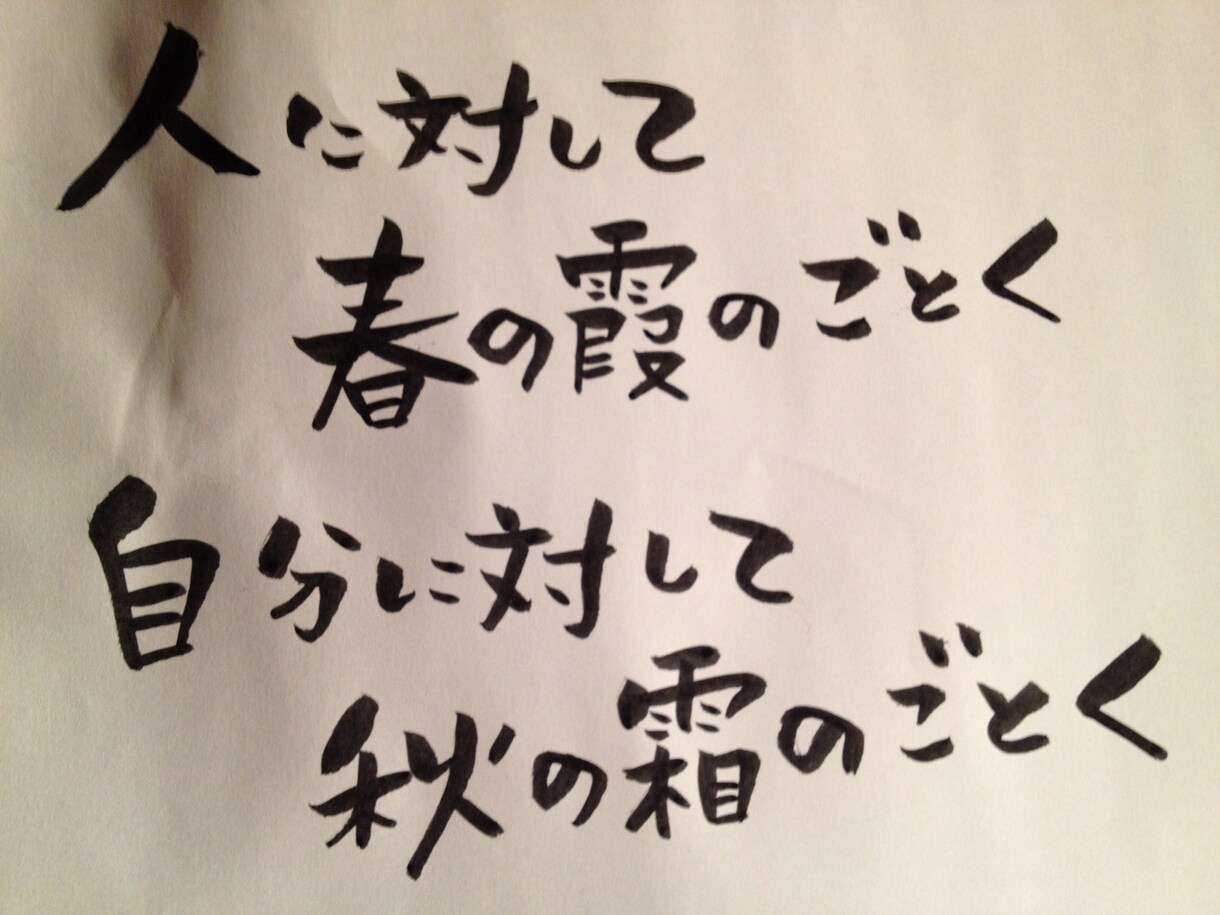 人に対して
春の霞のごとく
自分に対して
秋の霜のごとく